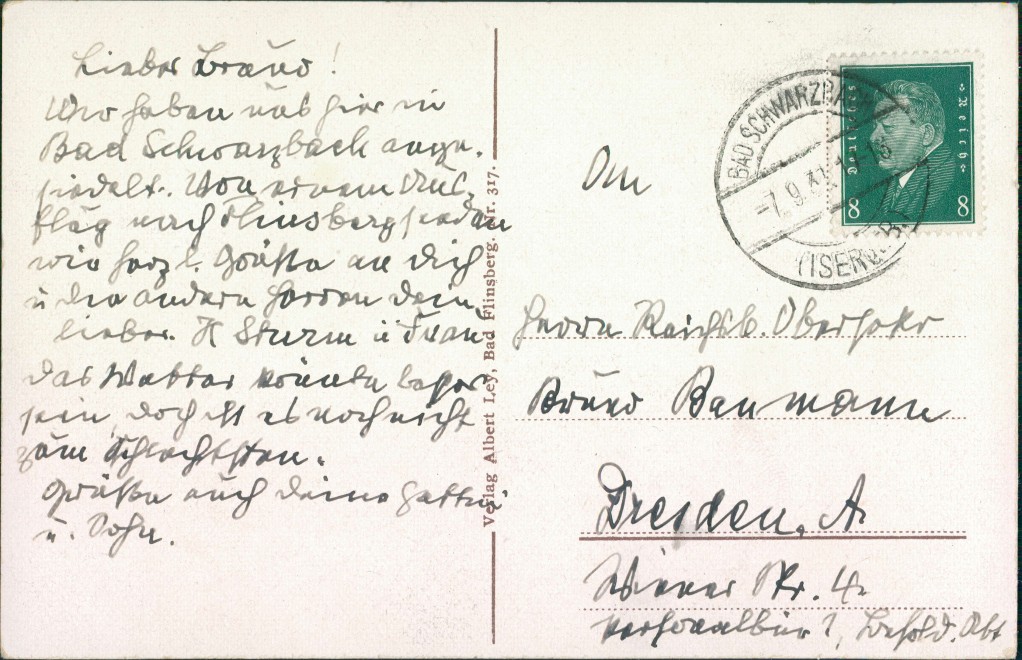 Lieber Bruno!
Wir haben uns hier in
Bad Schwarzbach ange-
siedelt. Von einem Aus-
flug nach Flinsberg senden
wir herzl. Grüße an Dich
u die andern Herren Dein
lieber H Sturm u Frau
das Wetter könnte besser
sein, doch ist es noch nicht
zum Schlechtsten.
Grüße auch Deine Gattin
u. Sohn.
Verlag Albert Ley, Bad Flinsberg. Nr. 317.
BAD SCHWARZBACH
-7.9.31
(ISERGEB
Deutsches Reich
8 8
An
Herrn Reichsb. Obersekr
Bruno Baumann
Dresden, A
Wiener Str. 4
Personalbür